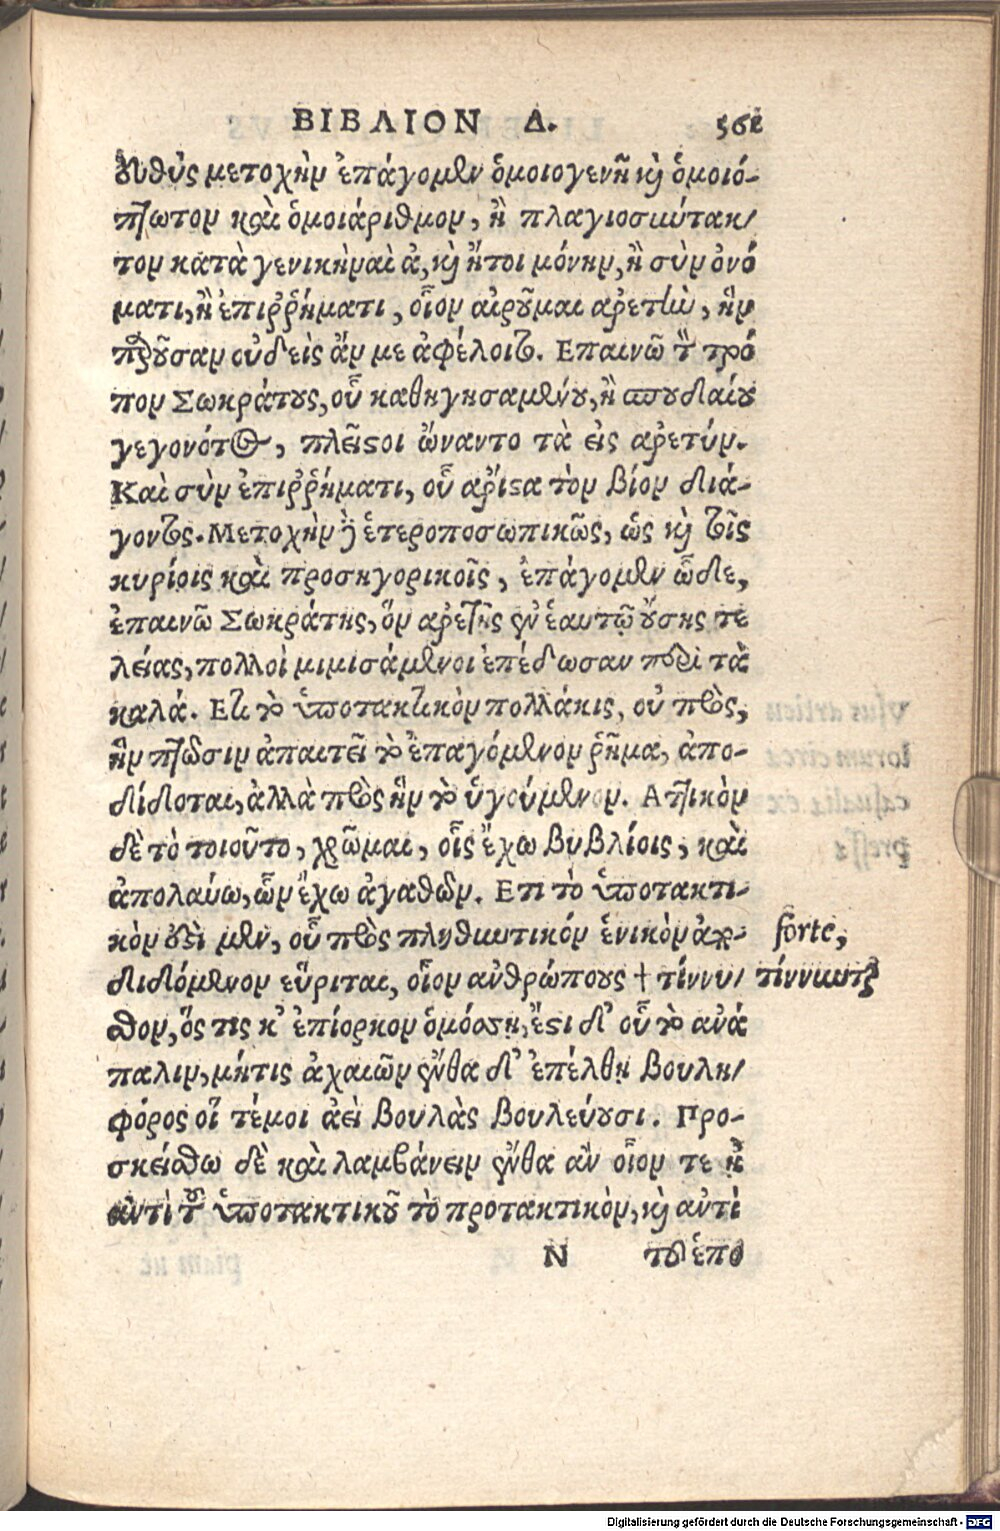 ΒΙΒΛΙΟΝ Δ.
εὐθὺς μετοχὴν ἐπάγομεν ὁμοιογενῆ καὶ ὁμοιό-
πτωτον καὶ ὁμοιάριθμον, ἢ πλαγιοσύντακ/
τον κατὰ γενικὴν αἰ ἀ, καὶ ἤτοι μόνην, ἢ σὺν ὀνό
ματι, ἢ ἐπιῤῥήματι, οἷον αἱροῦμαι ἀρετὴν, ἣν
παροῦσαν οὐδεὶς ἄν με ἀφέλοιτο. Επαινῶ τὸν τρό
πον Σωκράτους, οὗ καθηγησαμένου, ἢ σπουδαίου
γεγονότος, πλεῖστοι ὤναντο τὰ εἰς ἀρετήν.
Καὶ σὺν ἐπιῤῥήματι, οὗ ἄριστα τὸν βίον διά-
γοντος. Μετοχὴν δὲ ἑτεροποσωπικῶς, ὡς καὶ τοῖς
κυρίοις καὶ προσηγορικοῖς, ἐπάγομεν ὧδε,
ἐπαινῶ Σωκράτης, ὃν ἀρετῆς ἐν ἑαυτῷ οὔσης τε
λείας, πολλοὶ μιμισάμενοι ἐπέδωσαν περὶ τὰ
καλά. Ετι τὸ ὑποτακτικὸν πολλάκις, οὐ πρὸς,
ἣν πτῶσιν ἀπαιτεῖ τὸ ἐπαγόμενον ῥῆμα, ἀπο-
δίδοται, ἀλλὰ πρὸς ἣν τὸ ὑγούμενον. Αττικὸν
δὲ τὸ τοιοῦτο, χρῶμαι, οἷς ἔχω βυβλίοις, καὶ
ἀπολαύω, ὧν ἔχω ἀγαθῶν. Ετι τὸ ὑποτακτι-
κὸν ἔστι μὲν, οὗ πρὸς πληθυντικόν ἑνικὸν ἀπο- forte,
διδόμενον εὕριται, οἷον ἀνθρώπους † τίννυ/ τίννυνται
σθον, ὅς τις κ' ἐπίορκον ὁμόσση, ἔστι δ' οὗ τὸ ἀνά
παλιν, μήτις ἀχαιῶν ἔνθα δ' ἐπέλθη βουλη/
φόρος οἵ τέμοι ἀεὶ βουλὰς βουλεύουσι. Προ-
σκείσθω δὲ καὶ λαμβάνειν ἔνθα ἂν οἷον τε ᾖ
ἀντὶ τοῦ ὑποτακτικοῦ τὸ προτακτικὸν, καὶ ἀντὶ
N τοῦ ἑπο